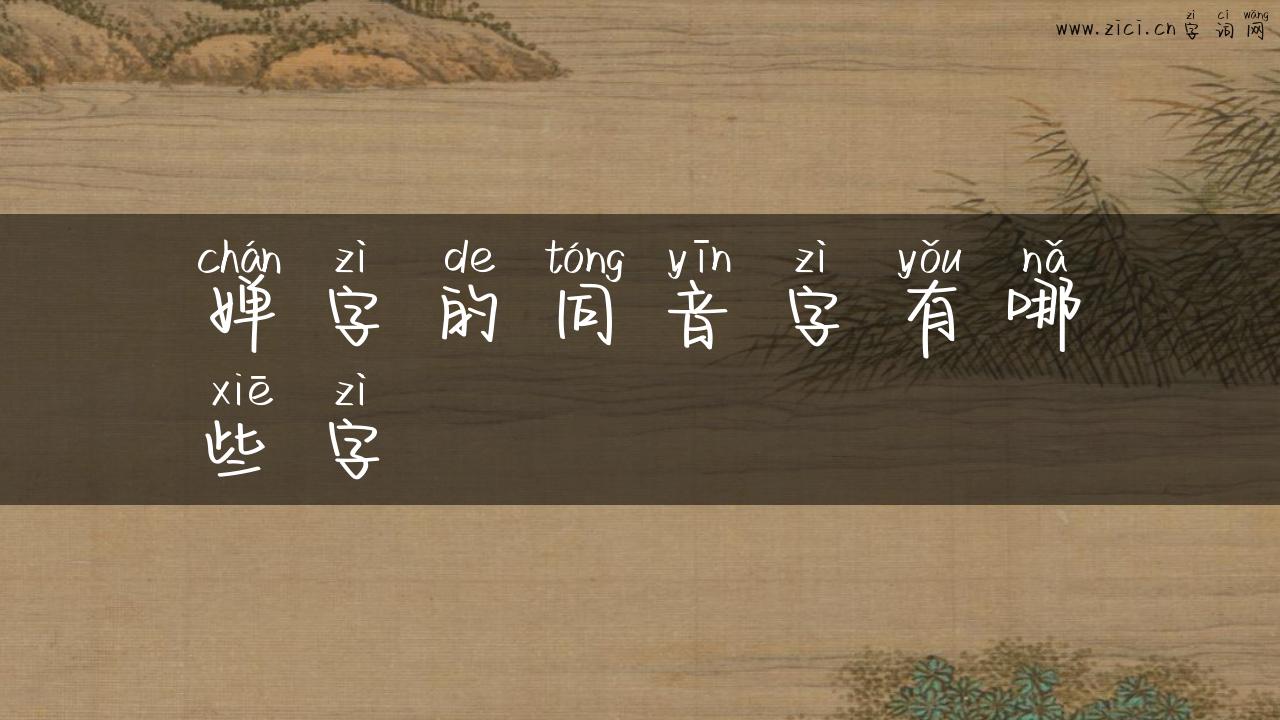 zì cí wǎng
www.zici.cn 字 词 网
chán zì de tóng yīn zì yǒu nǎ
婵 字 的 同 音 字 有 哪
xiē zì
些 字